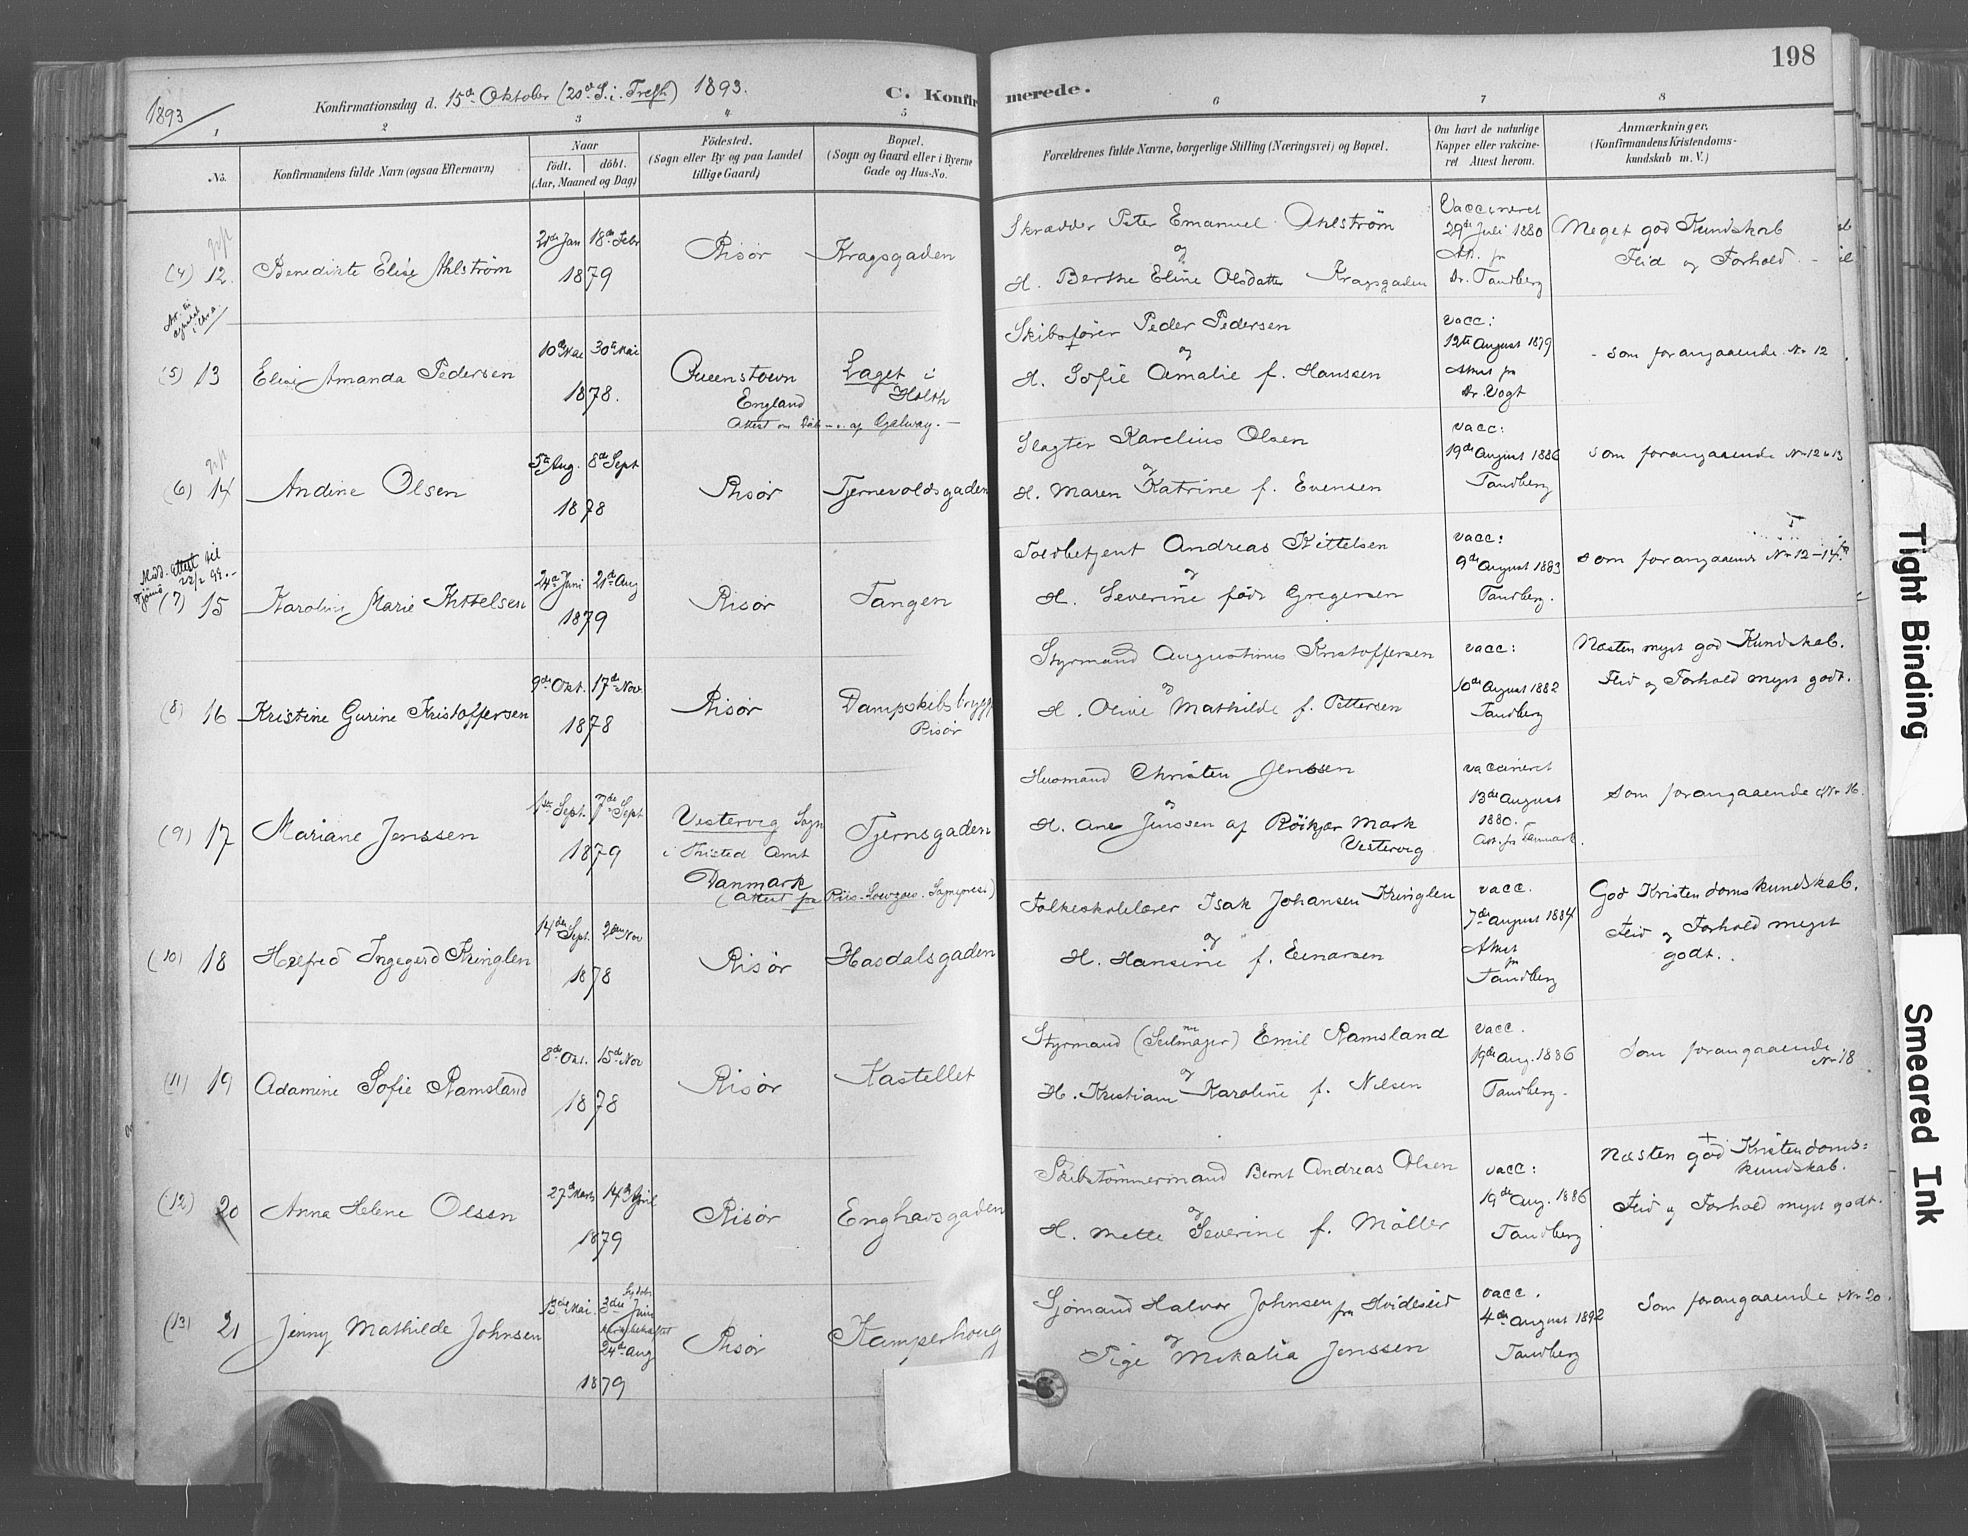 198
1893
Konfirmationsdag d. 15de Oktober (20de S. i. Trefh) 1893.
C. Konfirmerede.
1 2 3 4 5 6 7 8
No.
Konfirmandens fulde Navn (ogsaa Efternavn)
Naar
födt. döbt.
(Aar, Maaned og Dag)
Födested.
(Sogn eller By og paa Landet
tillige Gaard)
Bopæl.
(Sogn og Gaard eller i Byerne
Gade og Hus-No.
Forældrenes fulde Navne, borgerlige Stilling (Næringsvei) og Bopæl.
Om havt de naturlige
Kopper eller vakcine-
ret Attest herom.
Anmærkninger.
(Konfirmandens Kristendoms-
kundskab m. V.)
(4) 12.
Benedikte Elise Ahlström
18de Febr
1879
Risör
Kragsgaden
Skrædder Peter Emanuel Ahlström
og
H. Berthe Eline Olsdatter Kragsgaden
Vaccineret
29de Juli 1880
Att. fr
Dr. Tandberg
Meget god Kundskab
Flid og Forhold.
(5) 13
Elise Amanda Pedersen
10de Mai 30te Mai
1878.
Queenstown
England
Laget i
Holth
Skibsfører Peder Pedersen
og
H. Sofie Amalie f. Hanssen
vacc:
12te August 1879
Attest fra
Dr. Vogt
som forangaaende Nr 12
(6) 14
Andine Olsen
5te Aug. 8de Sept
1878
Risör
Tjernevoldsgaden
Slagter Karelius Olsen
og
H. Maren Katrine f. Evensen
vacc:
19de August 1886
Tandberg
som forangaaende Nr 12 & 13
Medd. attest til
22/2 99.
(7) 15
Karoline Marie Kittelsen
24de Juni 21de Aug
1879
Risör
Tangen
Toldbetjent Andreas Kittelsen
og
H. Severine född Gregersen
vacc:
9de August 1883
Tandberg.
som forangaaende Nr 12-14
(8) 16
Kristine Gurine Kristoffersen
9de Okt. 17de Nov.
1878
Risör
Dampskibsbrygg
Risör
Styrmand Augustinus Kristoffersen
og
H. Olive Mathilde f. Pettersen
vacc:
10de August 1882
Tandberg
Næsten myet god Kundskab.
Flid og Forhold myet godt.
(9) 17
Mariane Jenssen
1ste Sept. 7de Sept
1879
Vestervig Sogn
i Thisted Amt
Danmark
Tjernsgaden
Husmand Christen Jenssen
og
H. Ane Jenssen af Röikjær Mark
Vestervig
vaccineret
13de August
1880.
Att. fra Danmark.
Som forangaaende Nr 16.
(10) 18
Helfred Ingegerd Kringlen
14de Sept.
1878
Risör
Hasdalsgaden
Folkeskolelærer Isak Johansen Kringlen
og
H. Hansine f. Einarsen
vacc.
7de August 1884
Attest
fr
Tandberg
God Kristendomskundskab.
Flid og Forhold myet
godt.
(11) 19
Adamine Sofie Ramsland
8de Okt. 15de Nov
1878
Risör
Kastellet
Styrmand (Seilmager) Emil Ramsland
og
H. Kristiane Karoline f. Nilsen
vacc.
19de Aug. 1886
Tandberg.
Som forangaaende
Nr 18
(12) 20
Anna Helene Olsen
27de Marts 14de April
1879
Risör
Enghavsgaden
Skibstömmermand Bernt Andreas Olsen
og
H. Mette Severine f. Möller
vacc:
19de Aug. 1886
Tandberg
Næsten god Kristendoms=
kundskab.
Flid og Forhold myet godt.
(13) 21
Jenny Mathilde Johnsen
13de Mai. 3die Juni
24de Aug
1879
Risör
Kamperhoug
Sjömand Halvor Johnsen fra Hvideseid
og
Pige Mikalia Jenssen
vacc.
4de August 1892
Tandberg
Som forangaaende Nr 20.
Tight Binding
Smeared Ink